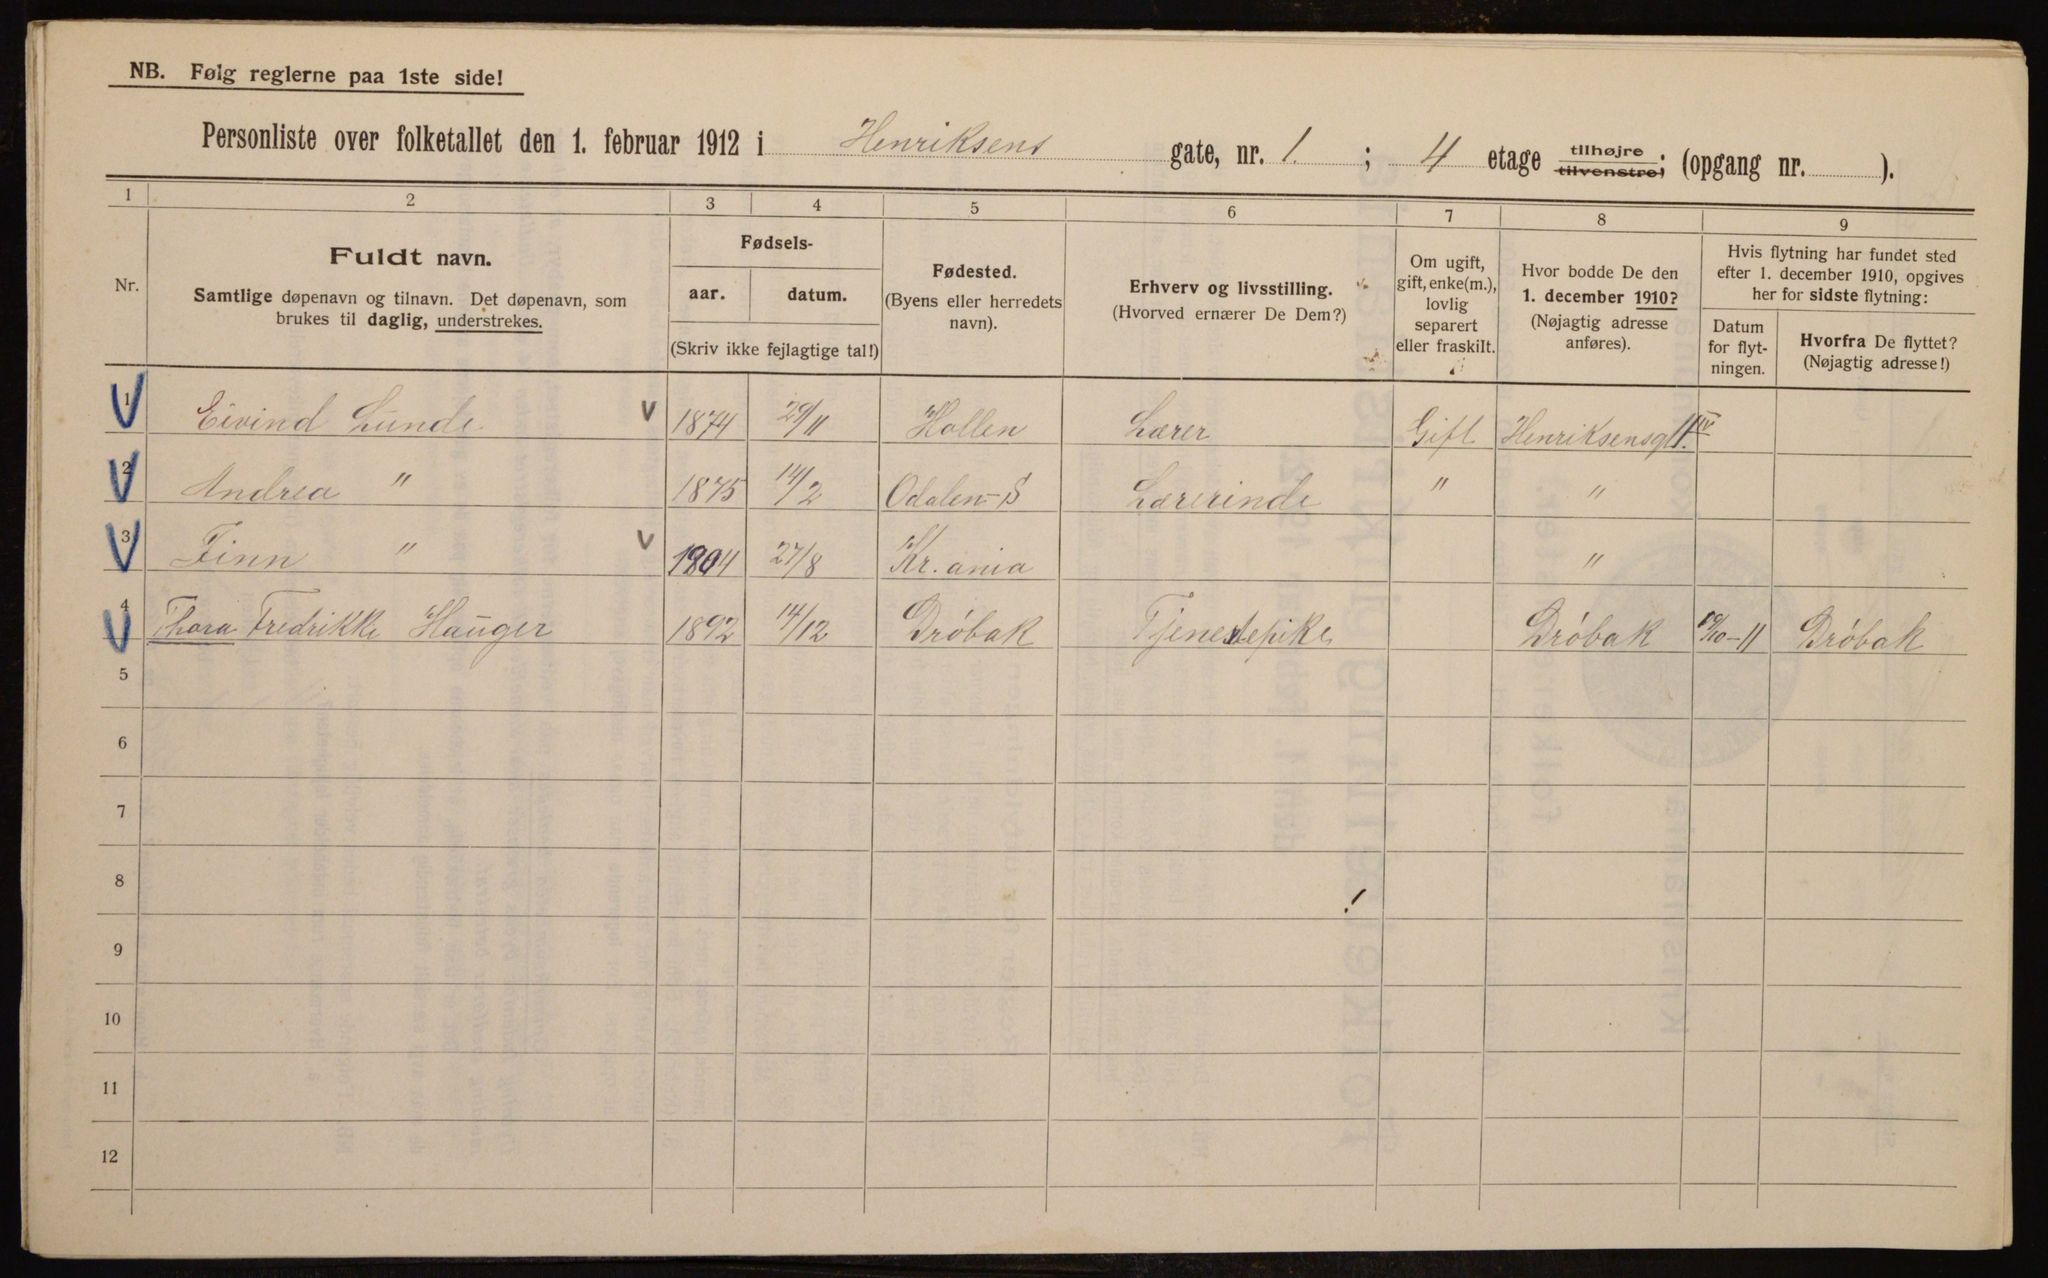 NB. Følg reglerne paa 1ste side!
Personliste over folketallet den 1. februar 1912 i Henriksens gate, nr. 1. ; 4 etage tilhøjre tilvenstre; (opgang nr. ).
1 2 3 4 5 6 7 8 9
Nr.
Fuldt navn.
Samtlige døpenavn og tilnavn. Det døpenavn, som
brukes til daglig, understrekes.
Fødsels-
aar. datum.
(Skriv ikke fejlagtige tal!)
Fødested.
(Byens eller herredets
navn).
Erhverv og livsstilling.
(Hvorved ernærer De Dem?)
Om ugift,
gift, enke(m.),
lovlig
separert
eller fraskilt.
Hvor bodde De den
1. december 1910?
(Nøjagtig adresse
anføres).
Hvis flytning har fundet sted
efter 1. december 1910, opgives
her for sidste flytning:
Datum
for flyt-
ningen.
Hvorfra De flyttet?
(Nøjagtig adresse!)
1 Eivind Lunde V 1874 29/11 Hollen Lærer Gift Henriksensgt 1 IV
2 Andrea " 1875 14/2 Odalen-S Lærerinde " "
3 Finn " V 1904 27/8 Kr.ania "
4 Thora Fredrikke Hauger 1892 14/12 Drøbak Tjenestepike Drøbak /10-11 Drøbak
5
6
7
8
9
10
11
12